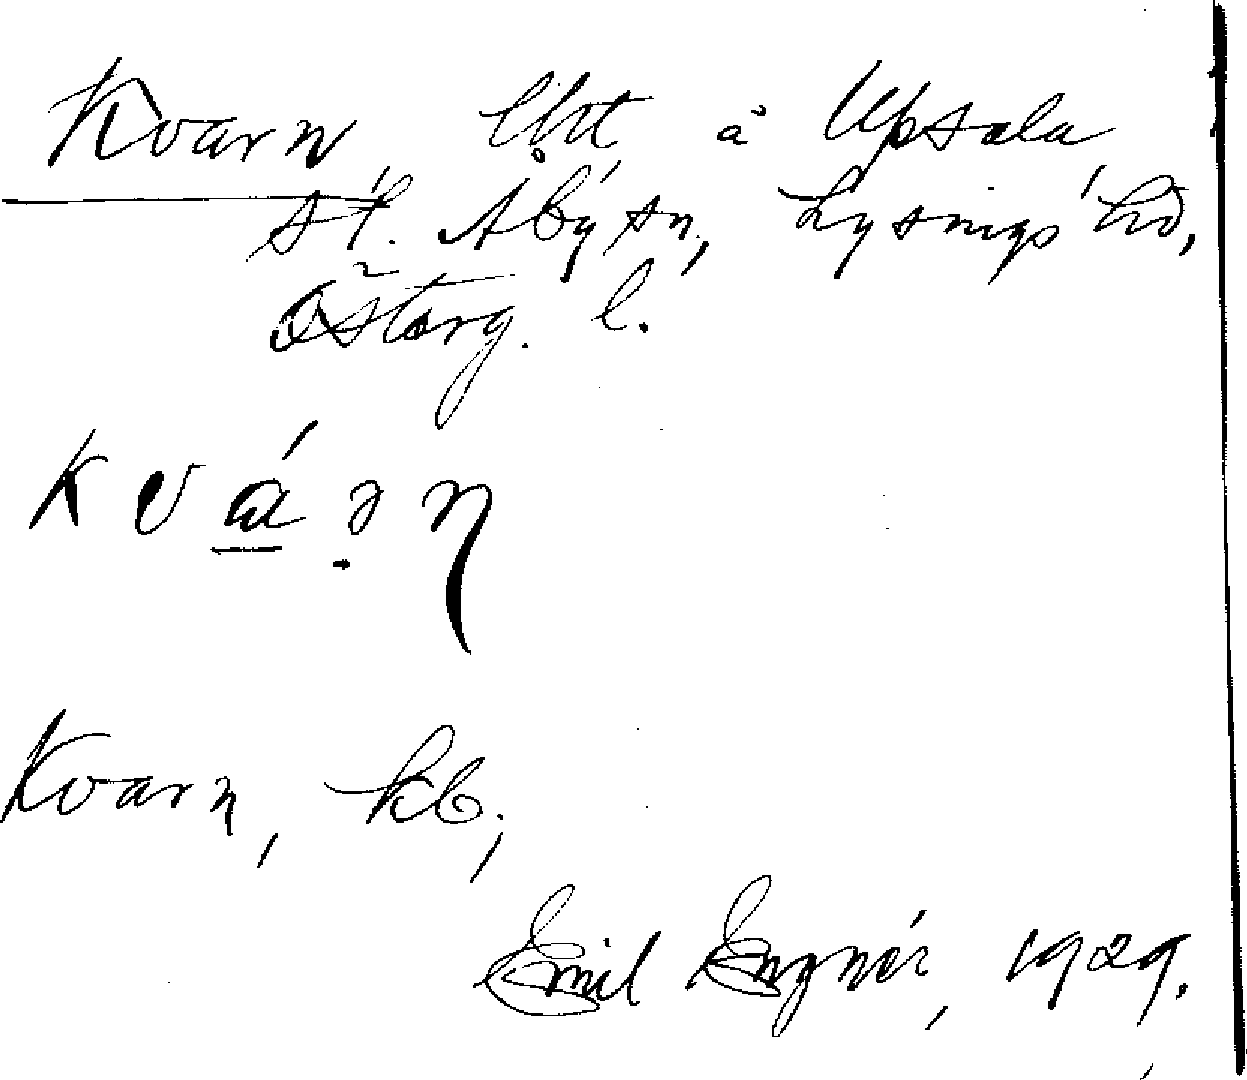 Kvarn, lht å Upsala
st. Åby sn, Lysings hd,
Östorg. l.
Kvarn, kb,
Emil Engnér, 1929.